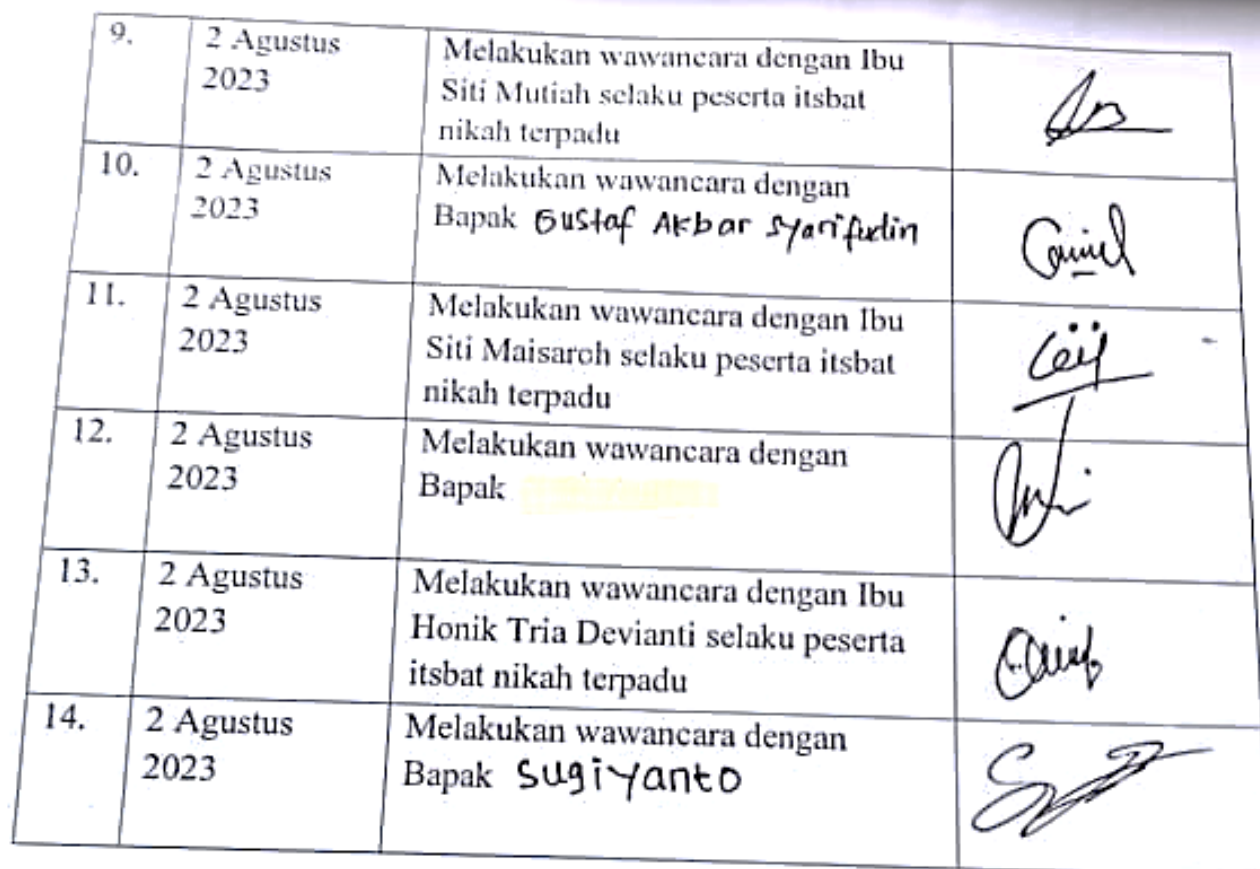 9.
2 Agustus
2023
Melakukan wawancara dengan Ibu
Siti Mutiah selaku peserta itsbat
nikah terpadu
10.
2 Agustus
2023
Melakukan wawancara dengan
Bapak Gustaf Akbar Syarifudin
11.
2 Agustus
2023
Melakukan wawancara dengan Ibu
Siti Maisaroh selaku peserta itsbat
nikah terpadu
12.
2 Agustus
2023
Melakukan wawancara dengan
Bapak
13.
2 Agustus
2023
Melakukan wawancara dengan Ibu
Honik Tria Devianti selaku peserta
itsbat nikah terpadu
14.
2 Agustus
2023
Melakukan wawancara dengan
Bapak Sugiyanto